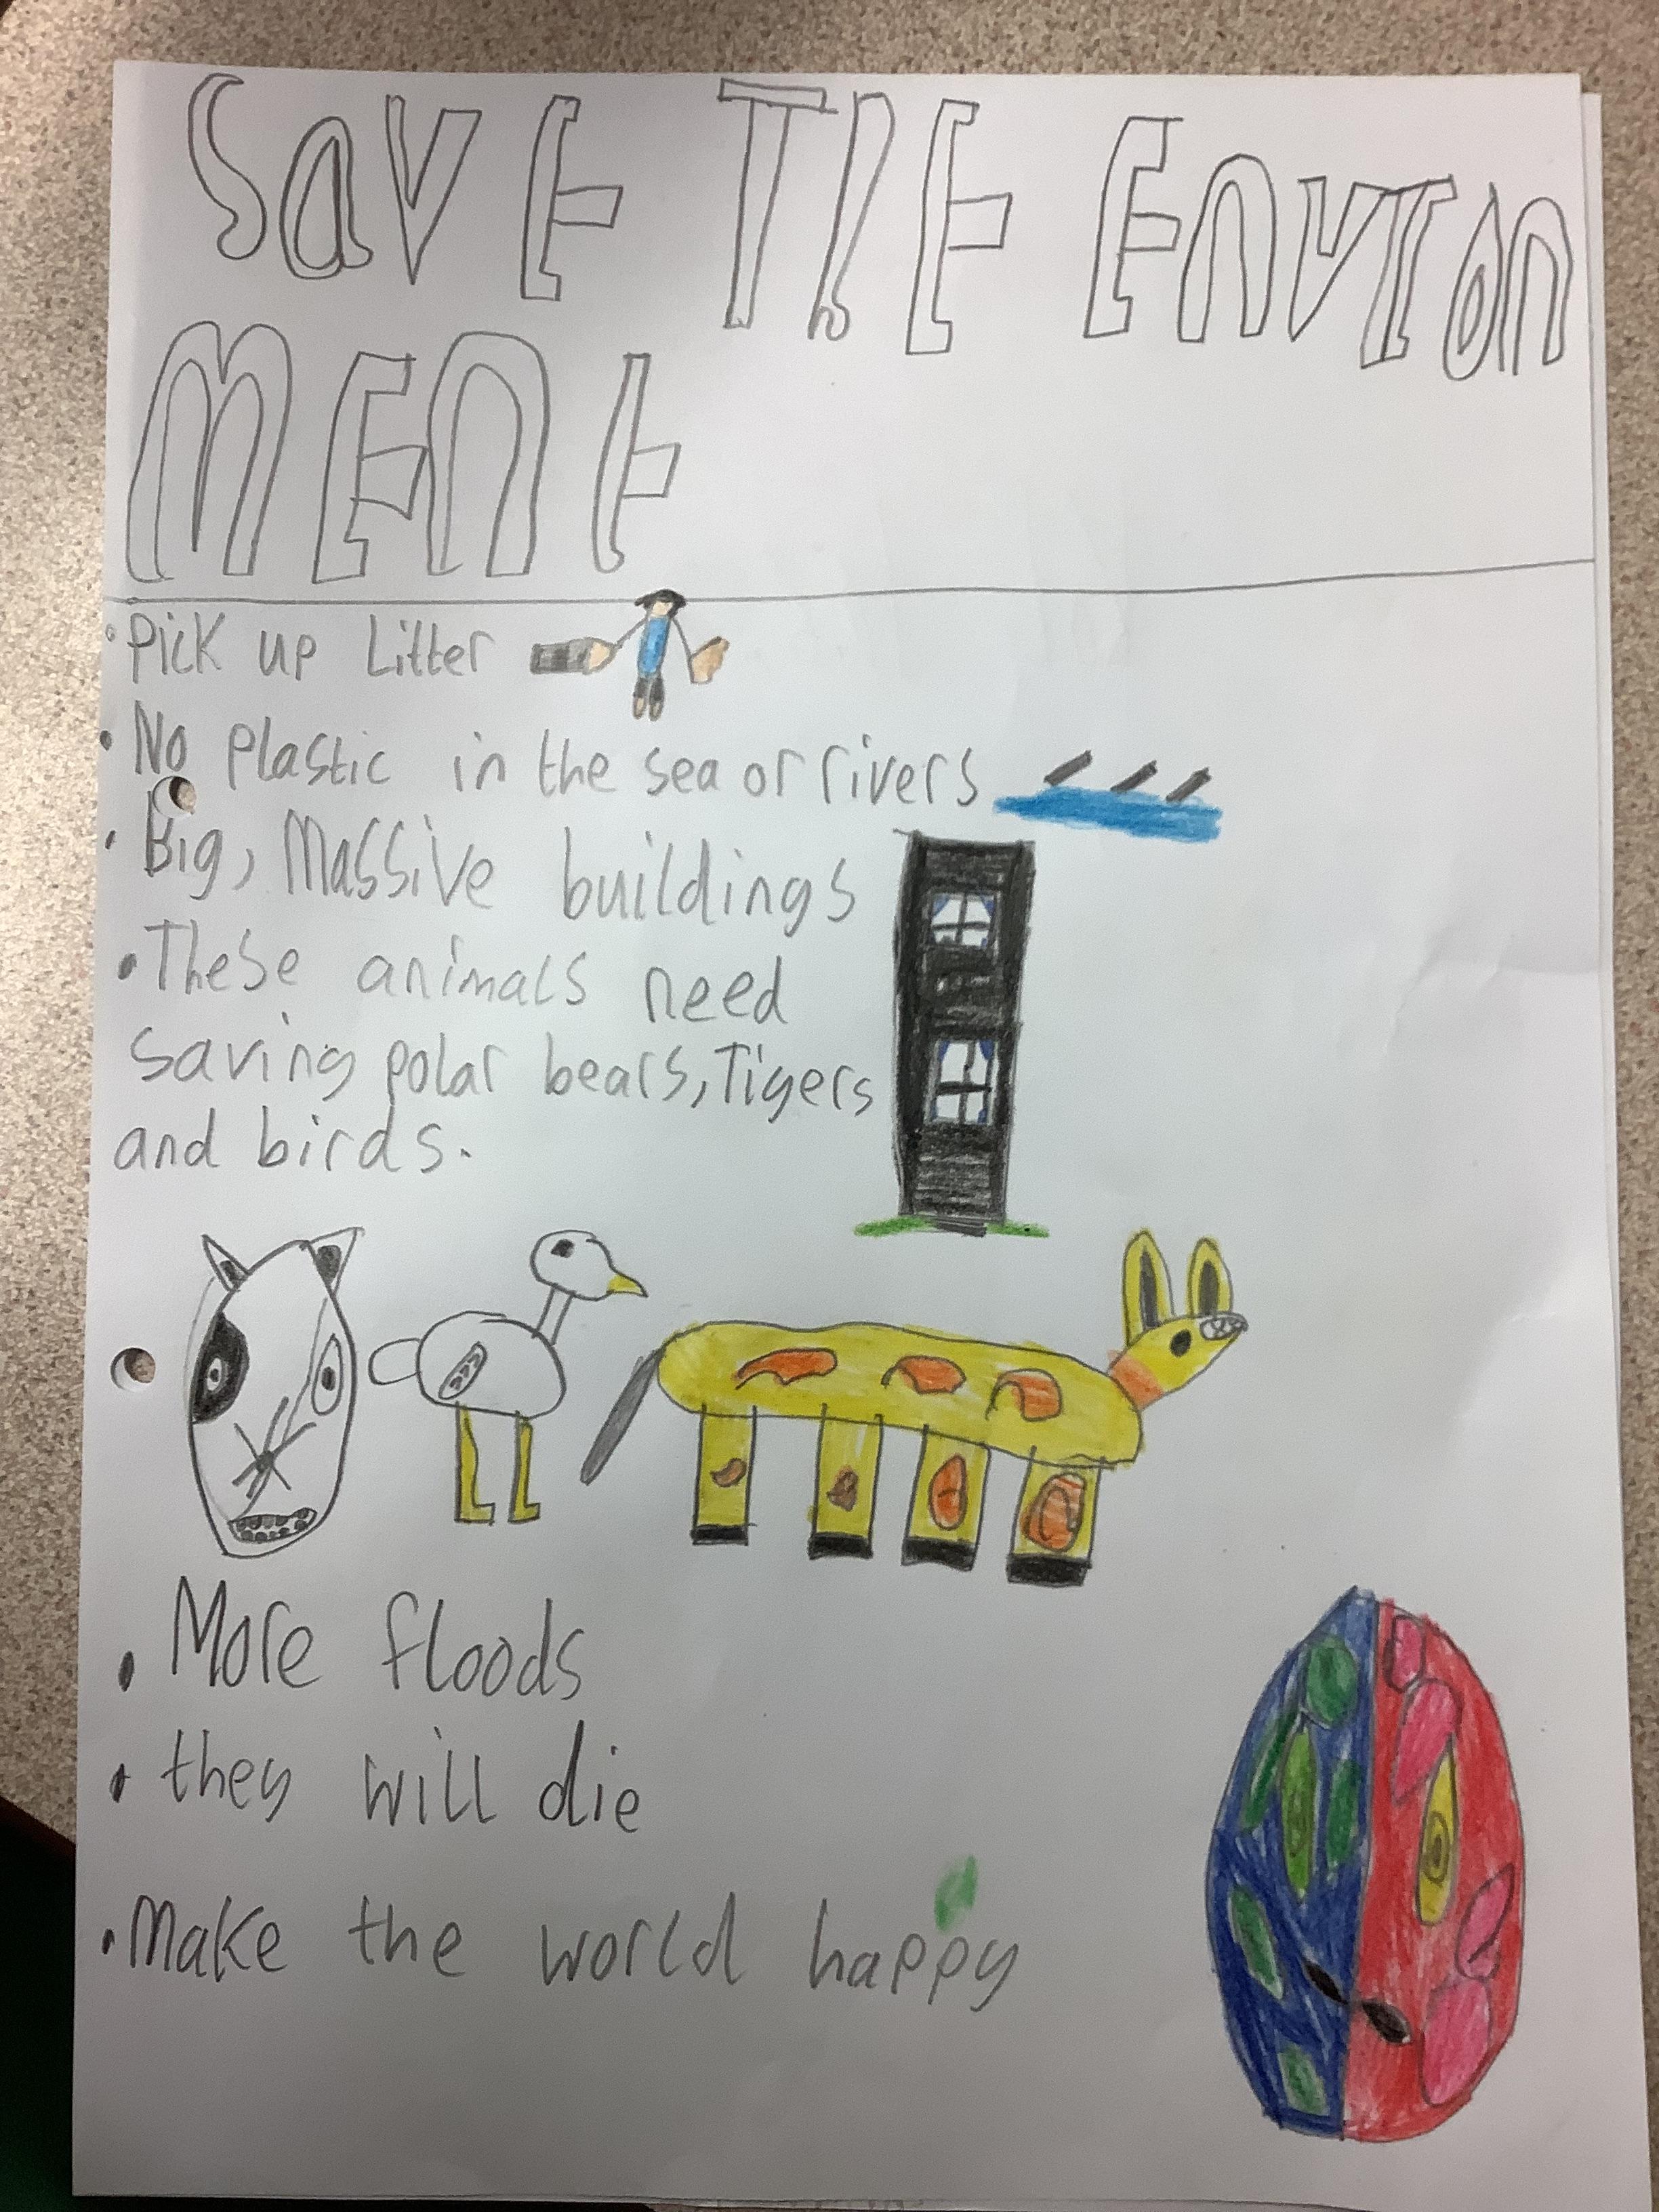 SavE ThE EnvIron
MEnt
• Pick up Litter
• No plastic in the sea or rivers
• Big, Massive buildings
• These animals need
saving polar bears, Tigers
and birds.
• More floods
• they will die
• Make the world happy